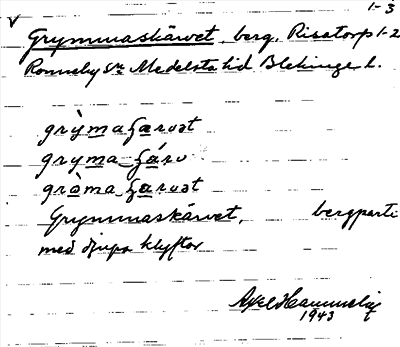 v 1-3
Grymmaskärvet, berg, Risatorp 1-2
Ronneby sn Medelsta hd Blekinge l.
grỳma ʃærvət
gryma ʃárv
gròma ʃærvət
Grymmaskärvet, bergparti
med djupa klyftor
Axel
1943